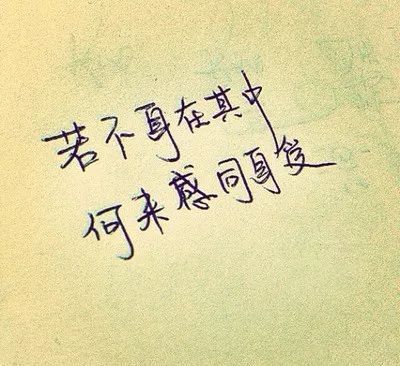 若不身在其中
何来感同身受